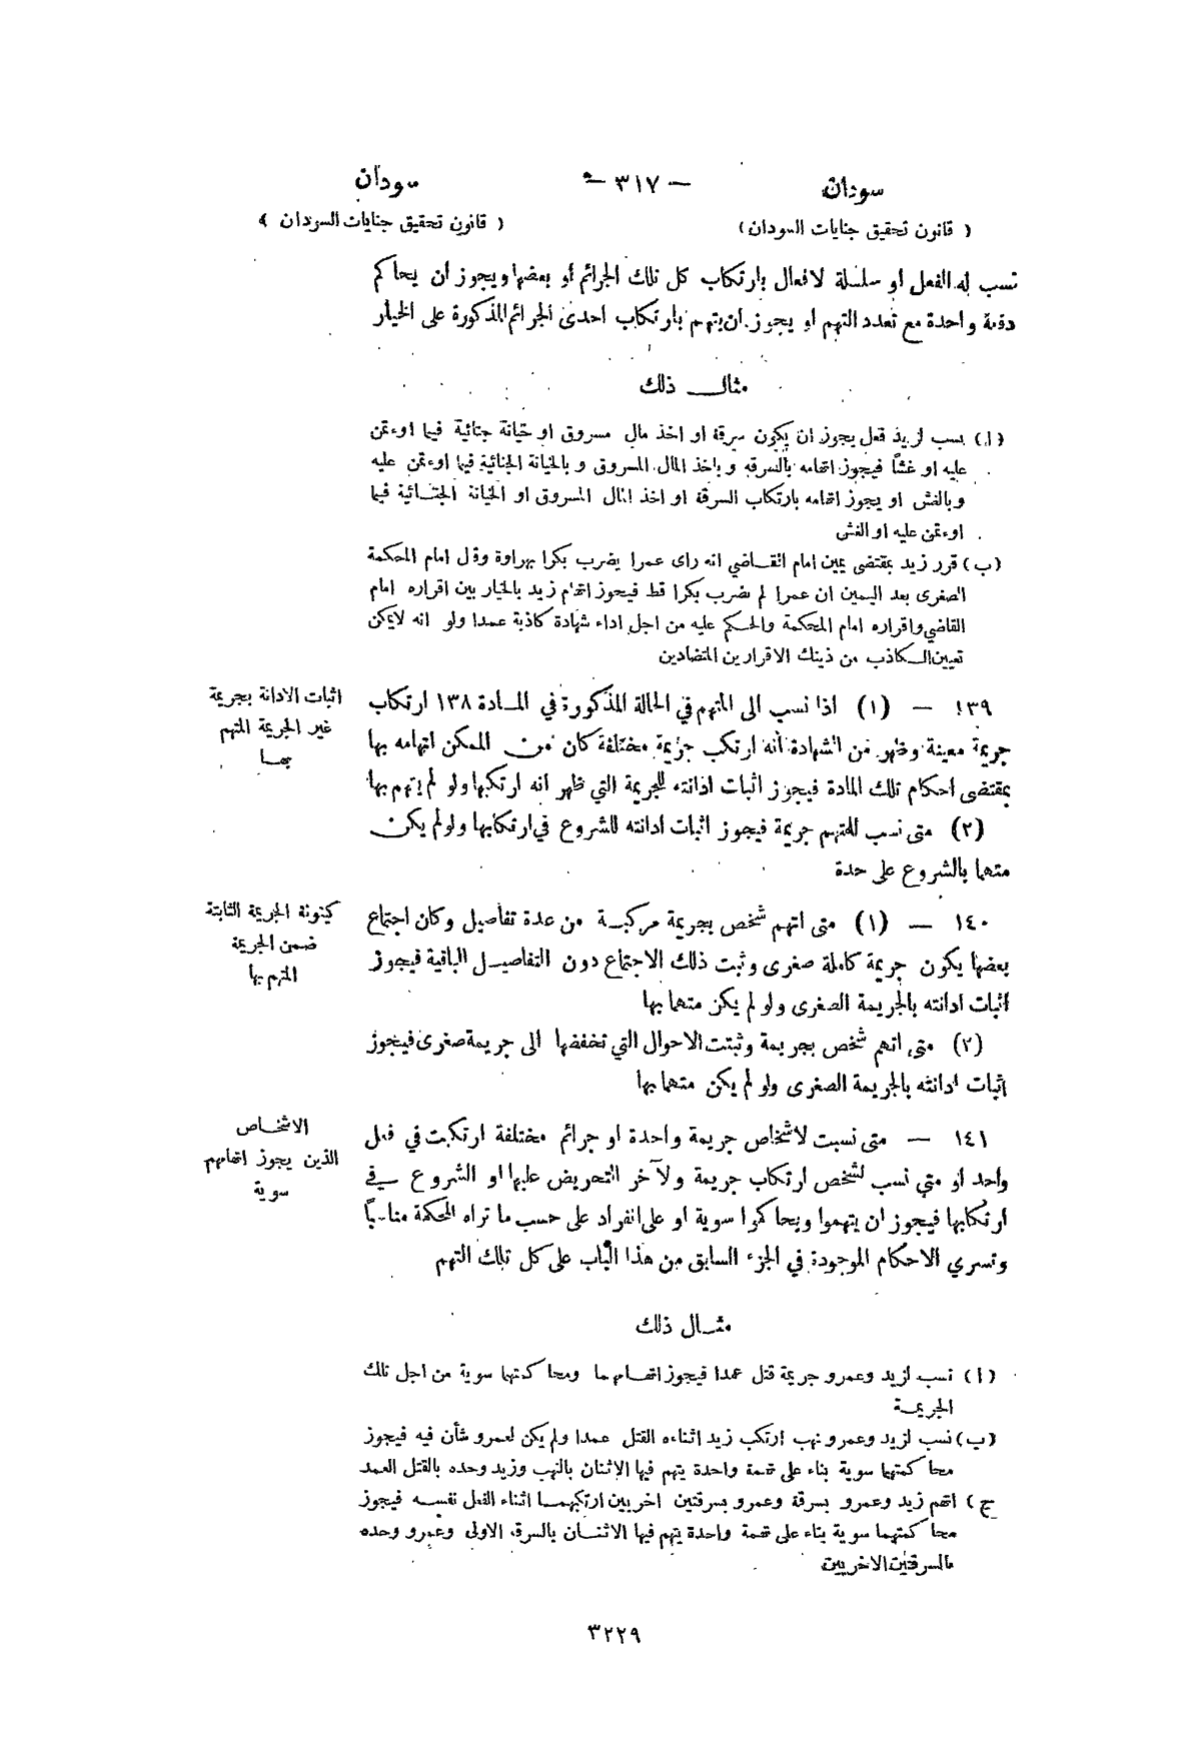 سودان
— ٣١٧ —
سودان
( قانون تحقيق جنايات السودان )
( قانون تحقيق جنايات السودان )
نسب له الفعل او سلسلة لافعال بارتكاب كل تلك الجرائم أو بعضها ويجوز ان يحاكم
دفعة واحدة مع تعدد التهم او يجوز ان يتهم بارتكاب احدى الجرائم المذكورة على الخيار
مثال ذلك
(ا) نسب لزيد فعل يجوز ان يكون سرقة او اخذ مال مسروق او خيانة جنائية فيما اوءتمن
عليه او غشا فيجوز اتهامه بالسرقه وباخذ المال المسروق و بالخيانة الجنائية فيما اوءتمن عليه
وبالغش او يجوز اتهامه بارتكاب السرقة او اخذ المال المسروق او الخيانة الجنائية فيما
اوءتمن عليه او الغش
(ب) قرر زيد بمقتضى يمين امام القاضي انه راى عمرا يضرب بكرا بهراوة وقال امام المحكمة
الصغرى بعد اليمين ان عمرا لم يضرب بكرا قط فيجوز اتهام زيد بالخيار بين اقراره امام
القاضي واقراره امام المحكمة والحكم عليه من اجل اداء شهادة كاذبة عمدا ولو انه لايمكن
تعيين الكاذب من ذينك الاقرارين المتضادين
اثبات الادانة بجريمة
غير الجريمة المتهم
بهـا
١٣٩ — (١) اذا نسب الى المتهم في الحالة المذكورة في المادة ١٣٨ ارتكاب
جريمة معينة وظهر من الشهادة انه ارتكب جريمة مختلفة كان من الممكن اتهامه بها
بمقتضى احكام تلك المادة فيجوز اثبات ادانته للجريمة التي ظهر انه ارتكبها ولو لم يتهم بها
(٢) متى نسب للمتهم جريمة فيجوز اثبات ادانته للشروع في ارتكابها ولولم يكن
متهما بالشروع على حدة
كينونة الجريمة الثابتة
ضمن الجريمة
المتهم بها
١٤٠ — (١) متى اتهم شخص بجريمة مركبة من عدة تفاصيل وكان اجتماع
بعضها يكون جريمة كاملة صغرى وثبت ذلك الاجتماع دون التفاصيل الباقية فيجوز
اثبات ادانته بالجريمة الصغرى ولو لم يكن متهما بها
(٢) متى اتهم شخص بجريمة وثبتت الاحوال التي تخفضها الى جريمة صغرى فيجوز
اثبات ادانته بالجريمة الصغرى ولو لم يكن متهما بها
الاشخاص
الذين يجوز اتهامهم
سوية
١٤١ — متى نسبت لاشخاص جريمة واحدة او جرائم مختلفة ارتكبت في فعل
واحد او متي نسب لشخص ارتكاب جريمة ولآخر التحريض عليها او الشروع في
ارتكابها فيجوز ان يتهموا ويحاكموا سوية او على انفراد على حسب ما تراه المحكمة مناسباً
وتسري الاحكام الموجودة في الجزء السابق من هذا الباب على كل تلك التهم
مثال ذلك
(ا) نسب لزيد وعمرو جريمة قتل عمدا فيجوز اتهامهما ومحاكمتهما سوية من اجل تلك
الجريمة
(ب) نسب لزيد وعمرو نهب ارتكب زيد اثناءه القتل عمدا ولم يكن لعمرو شأن فيه فيجوز
محاكمتهما سوية بناء على تهمة واحدة يتهم فيها الاثنان بالنهب وزيد وحده بالقتل العمد
ج ) اتهم زيد وعمرو بسرقة وعمرو بسرقتين اخريين ارتكبهما اثناء الفعل نفسه فيجوز
محاكمتهما سوية بناء على تهمة واحدة يتهم فيها الاثنان بالسرقة الاولى وعمرو وحده
بالسرقتين الاخريين
٣٢٢٩